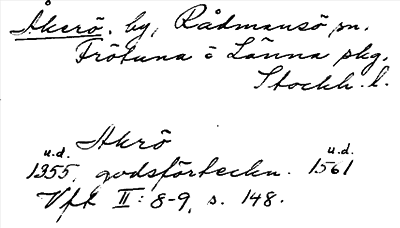 Åkerö, by, Rådmansö sn.
Frötuna o Länna skg.
Stockh. l.
Akrö
u.d. u.d.
1355, godsförteckn. 1561
Vft II: 8-9, s. 148.